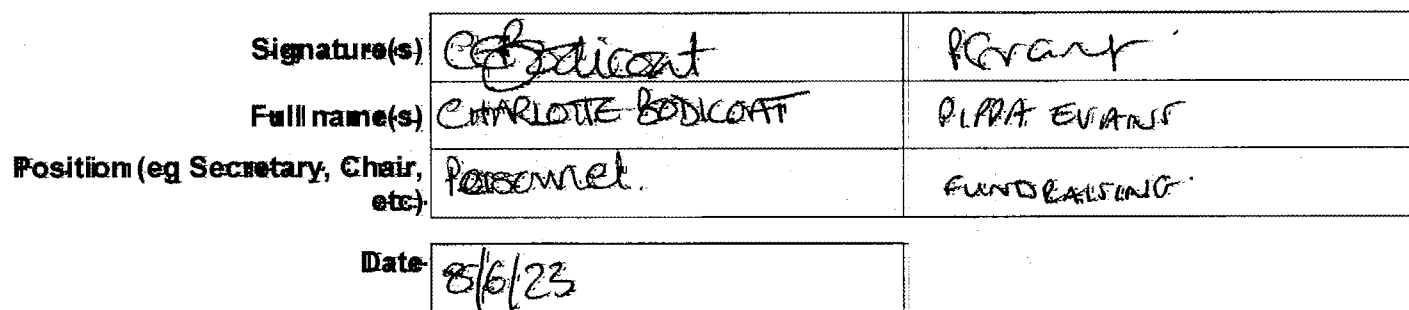 Signature(s) CBodicoat
Full name(s) CHARLOTTE BODICOAT PIPPA EVANS
Position (eg Secretary, Chair, Personnel. FUNDRAISING.
etc)
Date 8/6/23